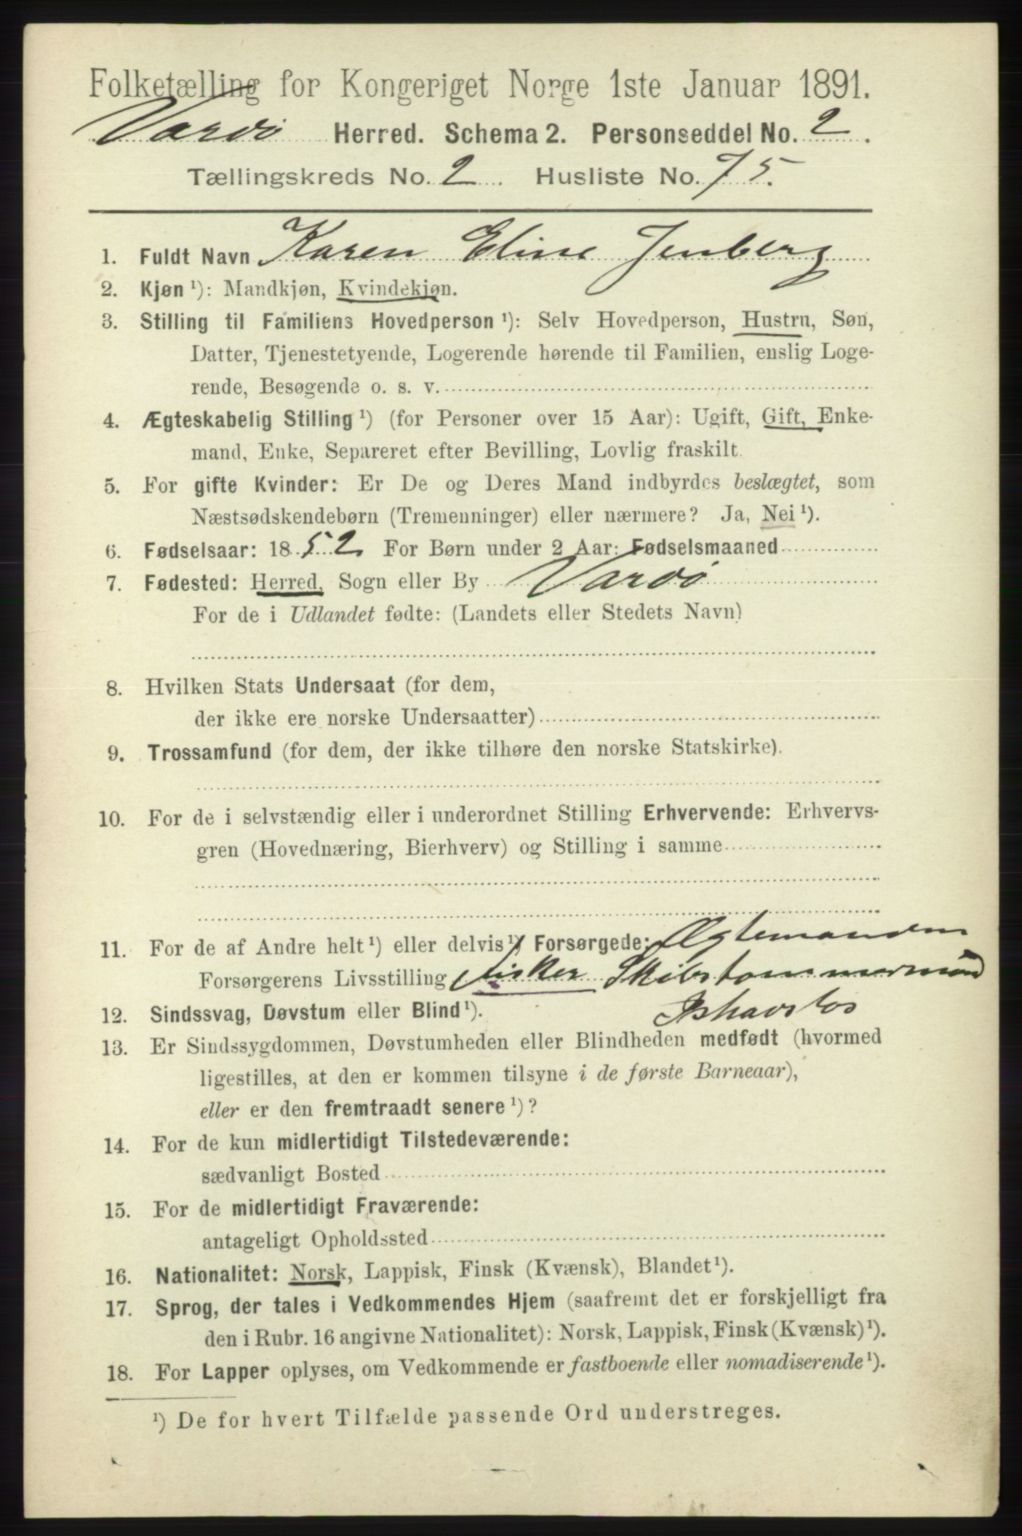 Folketælling for Kongeriget Norge 1ste Januar 1891.
Vardö Herred. Schema 2. Personseddel No. 2.
Tællingskreds No. 2. Husliste No. 75.
1. Fuldt Navn Karen Eline Jenberg
2. Kjøn ¹): Mandkjøn, Kvindekjøn.
3. Stilling til Familiens Hovedperson ¹): Selv Hovedperson, Hustru, Søn,
Datter, Tjenestetyende, Logerende hørende til Familien, enslig Loge-
rende, Besøgende o. s. v.
4. Ægteskabelig Stilling ¹) (for Personer over 15 Aar): Ugift, Gift, Enke-
mand, Enke, Separeret efter Bevilling, Lovlig fraskilt
5. For gifte Kvinder: Er De og Deres Mand indbyrdes beslægtet, som
Næstsødskendebørn (Tremenninger) eller nærmere? Ja, Nei ¹).
6. Fødselsaar: 1852 For Børn under 2 Aar: Fødselsmaaned
7. Fødested: Herred, Sogn eller By Vardö
For de i Udlandet fødte: (Landets eller Stedets Navn)
8. Hvilken Stats Undersaat (for dem,
der ikke ere norske Undersaatter)
9. Trossamfund (for dem, der ikke tilhøre den norske Statskirke).
10. For de i selvstændig eller i underordnet Stilling Erhvervende: Erhvervs-
gren (Hovednæring, Bierhverv) og Stilling i samme
11. For de af Andre helt ¹) eller delvis ¹) Forsørgede: Ægtemanden
Forsørgerens Livsstilling Fisker Skibstømmermand
Ishavslos
12. Sindssvag, Døvstum eller Blind ¹).
13. Er Sindssygdommen, Døvstumheden eller Blindheden medfødt (hvormed
ligestilles, at den er kommen tilsyne i de første Barneaar),
eller er den fremtraadt senere ¹)?
14. For de kun midlertidigt Tilstedeværende:
sædvanligt Bosted
15. For de midlertidigt Fraværende:
antageligt Opholdssted
16. Nationalitet: Norsk, Lappisk, Finsk (Kvænsk), Blandet ¹).
17. Sprog, der tales i Vedkommendes Hjem (saafremt det er forskjelligt fra
den i Rubr. 16 angivne Nationalitet): Norsk, Lappisk, Finsk (Kvænsk) ¹).
18. For Lapper oplyses, om Vedkommende er fastboende eller nomadiserende ¹).
¹) De for hvert Tilfælde passende Ord understreges.